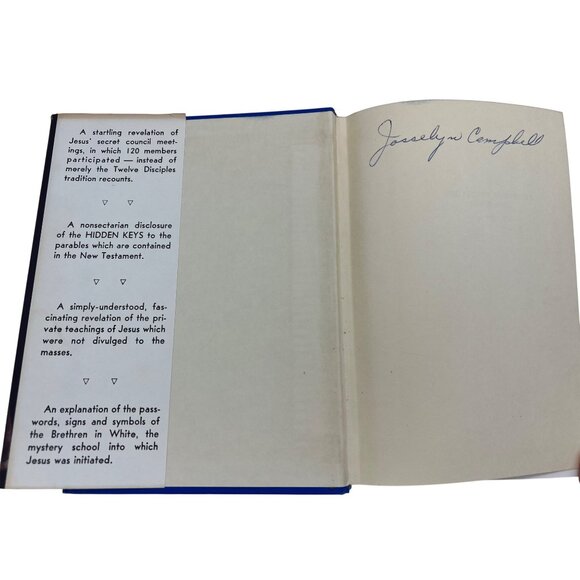 A startling revelation of
Jesus' secret council meet-
ings, in which 120 members
participated — instead of
merely the Twelve Disciples
tradition recounts.
▽ ▽
A nonsectarian disclosure
of the HIDDEN KEYS to the
parables which are contained
in the New Testament.
▽ ▽
A simply-understood, fas-
cinating revelation of the pri-
vate teachings of Jesus which
were not divulged to the
masses.
▽ ▽
An explanation of the pass-
words, signs and symbols of
the Brethren in White, the
mystery school into which
Jesus was initiated.
Josselyn Campbell